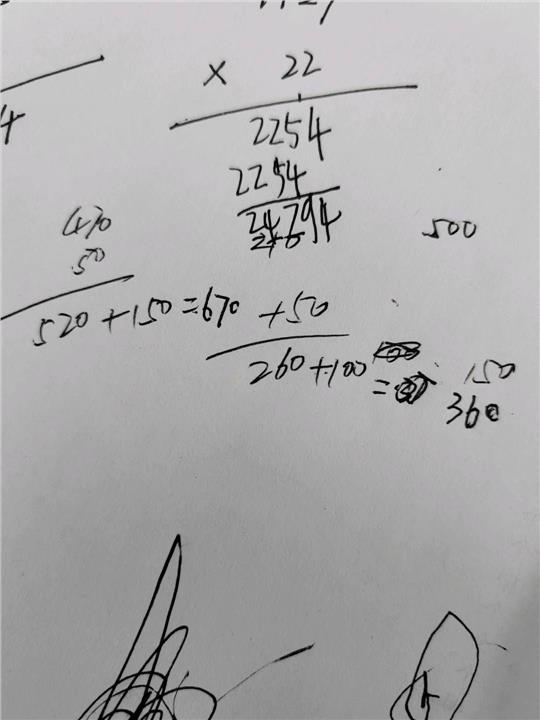 × 22
2254
2254
24794
470
50
500
520+150=670
+50
260+100
=
150
360
4